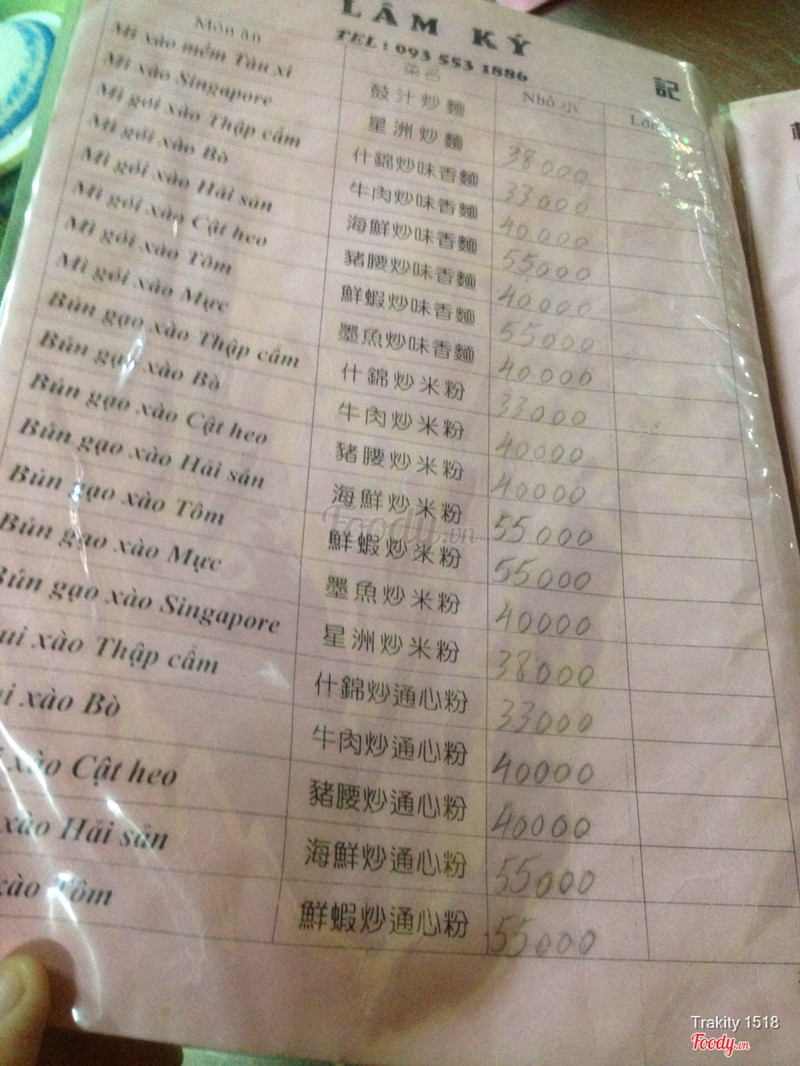 LÂM KÝ 記
TEL : 093 553 1886
Món ăn 菜名 Nhỏ 小
Mì xào mềm Tàu xì 鼓汁炒麵
Mì xào Singapore 星洲炒麵 38000
Mì gói xào Thập cẩm 什錦炒味香麵 33000
Mì gói xào Bò 牛肉炒味香麵 40.000
Mì gói xào Hải sản 海鮮炒味香麵 55.000
Mì gói xào Cật heo 豬腰炒味香麵 40000
Mì gói xào Tôm 鮮蝦炒味香麵 55000
Mì gói xào Mực 墨魚炒味香麵 40.000
Bún gạo xào Thập cẩm 什錦炒米粉 33000
Bún gạo xào Bò 牛肉炒米粉 40000
Bún gạo xào Cật heo 豬腰炒米粉 40000
Bún gạo xào Hải sản 海鮮炒米粉 55000
Bún gạo xào Tôm 鮮蝦炒米粉 55000
Bún gạo xào Mực 墨魚炒米粉 40000
Bún gạo xào Singapore 星洲炒米粉 38000
ui xào Thập cẩm 什錦炒通心粉 33000
i xào Bò 牛肉炒通心粉 40000
xào Cật heo 豬腰炒通心粉 40000
xào Hải sản 海鮮炒通心粉 55000
xào Tôm 鮮蝦炒通心粉 55000
Foody.vn
Trakity 1518
Foody.vn